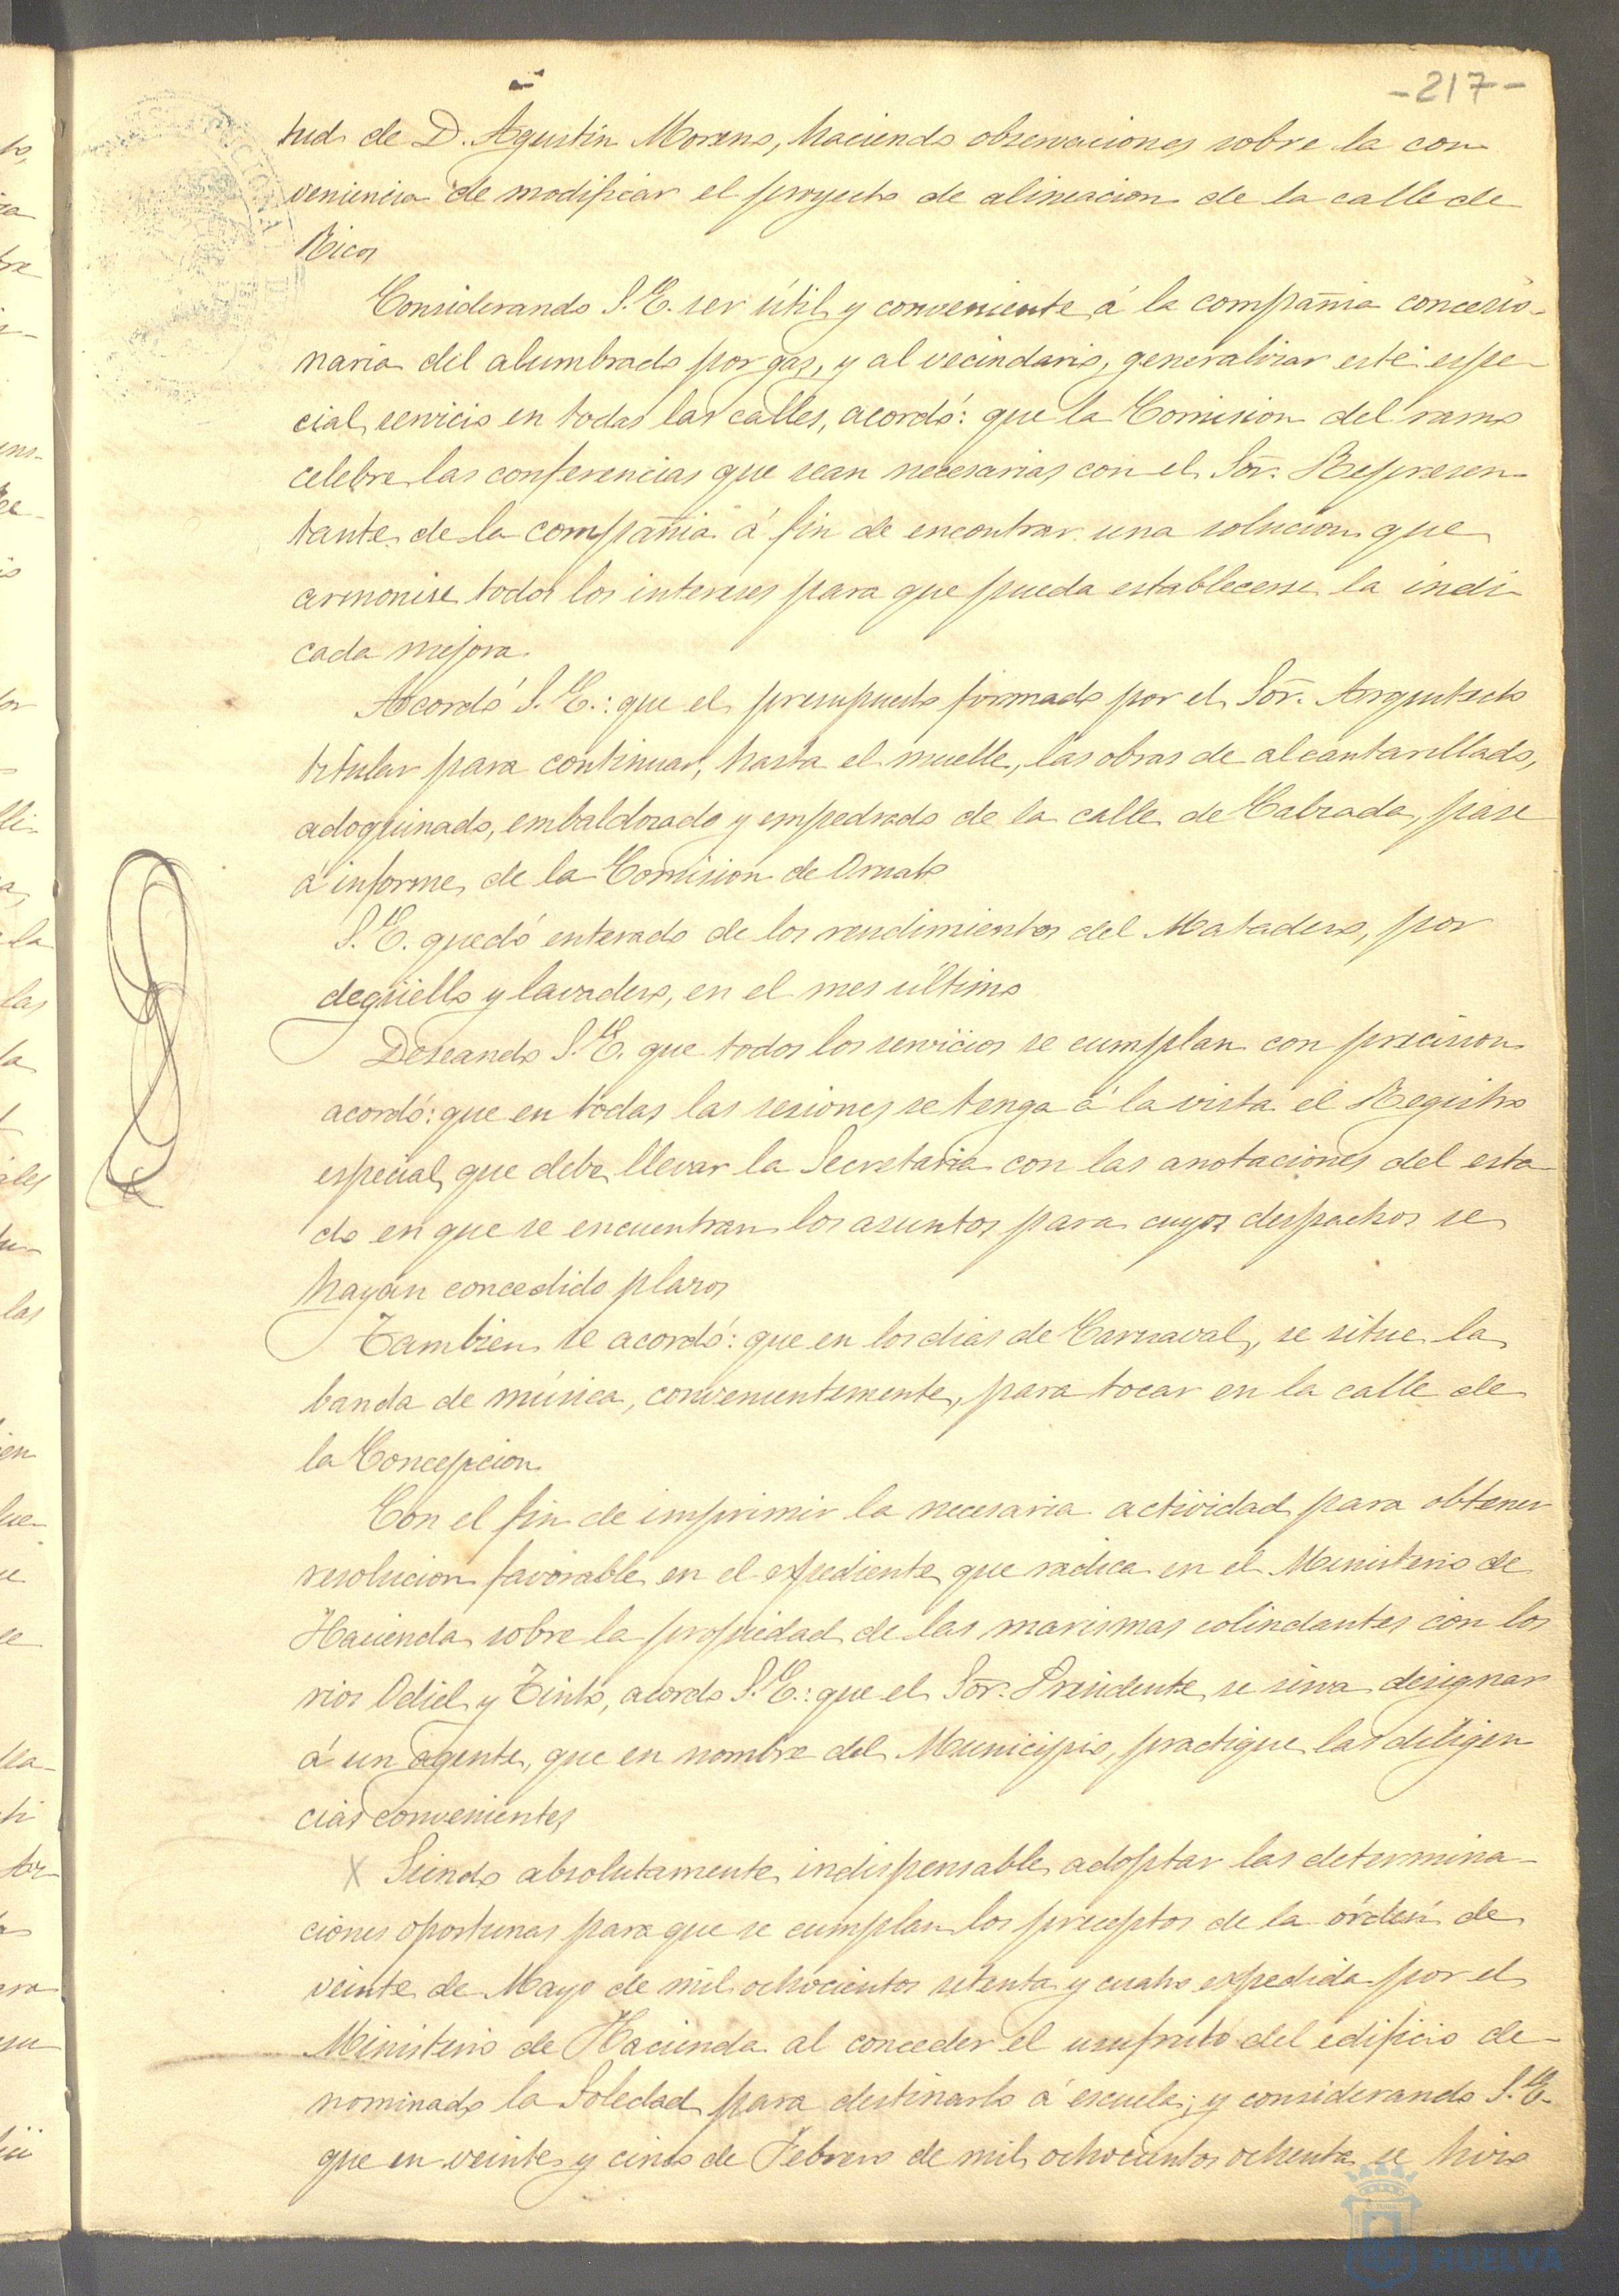 -217-
tud de D. Agustin Moreno, haciendo observaciones sobre la con
veniencia de modificar el proyecto de alineacion de la calle de
Ricos
Considerando S.E. ser útil y conveniente á la compañia concesio-
naria del alumbrado por gas, y al vecindario, generalizar este espe-
cial servicio en todas las calles, acordó: que la Comision del ramo
celebre las conferencias que sean necesarias con el Sor. Represen
tante de la compañia á fin de encontrar una solucion que
armonise todos los intereses para que pueda establecerse la indi
cada mejora.
Acordó S.E.: que el presupuesto formado por el Sor. Arquitecto
titular para continuar, hasta el muelle, las obras de alcantarillado,
adoquinado, embaldosado y empedrado de la calle de Calzada, pase
á informe de la Comision de Ornato
S.E. quedó enterado de los rendimientos del Matadero, por
degüello y lavadero, en el mes último
Deseando S.E. que todos los servicios se cumplan con precision
acordó: que en todas las sesiones se tenga á la vista el Registro
especial que debe llevar la Secretaria con las anotaciones del esta
do en que se encuentran los asuntos para cuyos despachos se
hayan concedido plazos
Tambien se acordó: que en los dias de Carnaval, se situe la
banda de música, convenientemente, para tocar en la calle de
la Concepcion
Con el fin de imprimir la necesaria actividad para obtener
resolucion favorable en el expediente que radica en el Ministerio de
Hacienda sobre la propiedad de las marismas colindantes con los
rios Odiel y Tinto, acordo S.E.: que el Sor. Presidente se sirva designar
á un agente, que en nombre del Municipio, practique las diligen
cias convenientes
X Siendo absolutamente indispensable adoptar las determina-
ciones oportunas para que se cumplan los preceptos de la órden de
veinte de Mayo de mil ochocientos setenta y cuatro expedida por el
Ministerio de Hacienda al conceder el usufruto del edificio de-
nominado la Soledad para destinarlo á escuela; y considerando S.E.
que en veinte y cinco de Febrero de mil ochocientos ochenta se hizo
HUELVA